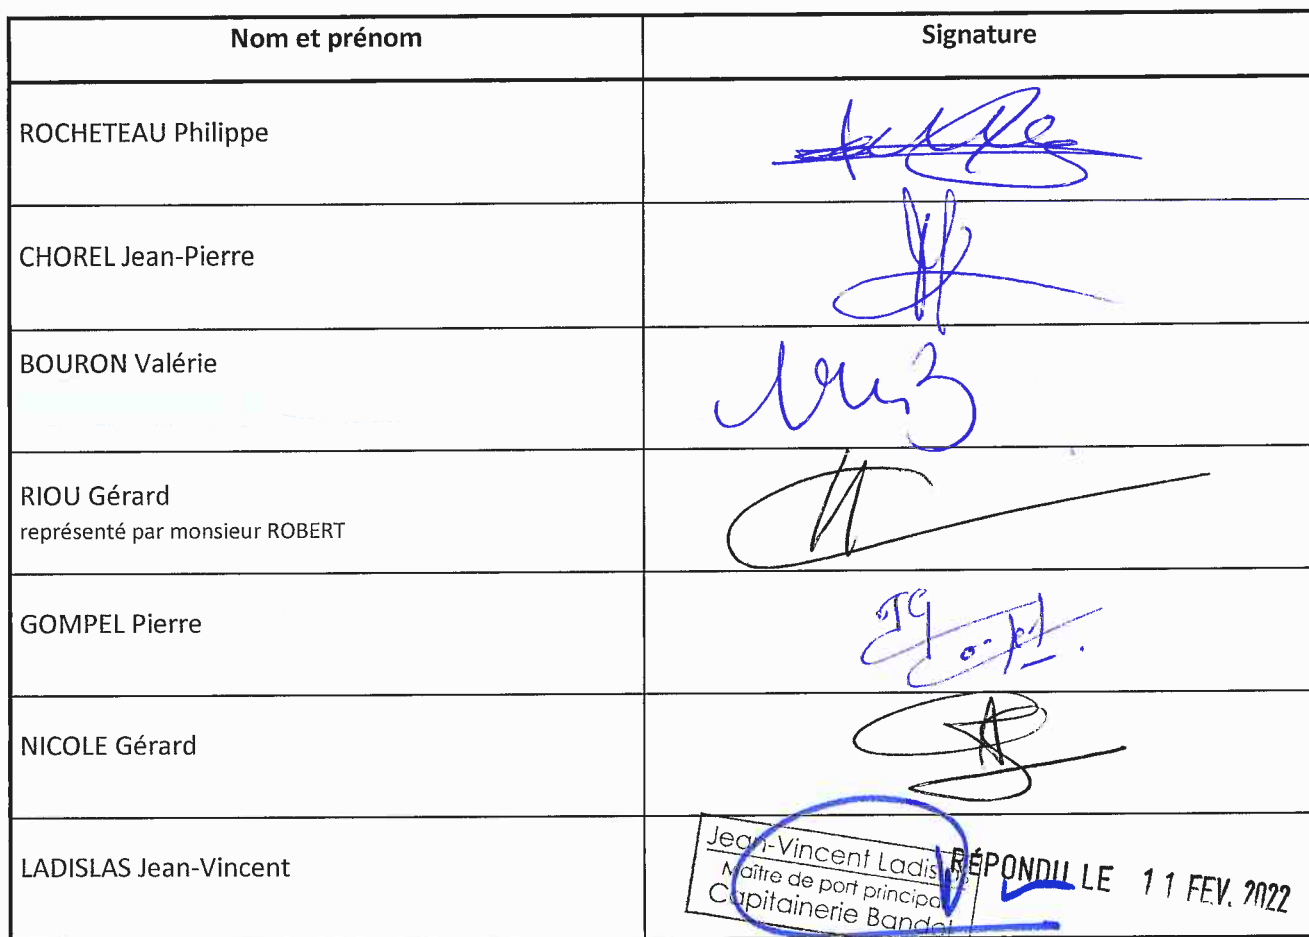 Nom et prénom
Signature
ROCHETEAU Philippe
CHOREL Jean-Pierre
BOURON Valérie
RIOU Gérard
représenté par monsieur ROBERT
GOMPEL Pierre
NICOLE Gérard
LADISLAS Jean-Vincent
Jean-Vincent Ladislas
Maître de port principal
Capitainerie Bandol
RÉPONDU LE 11 FEV. 2022